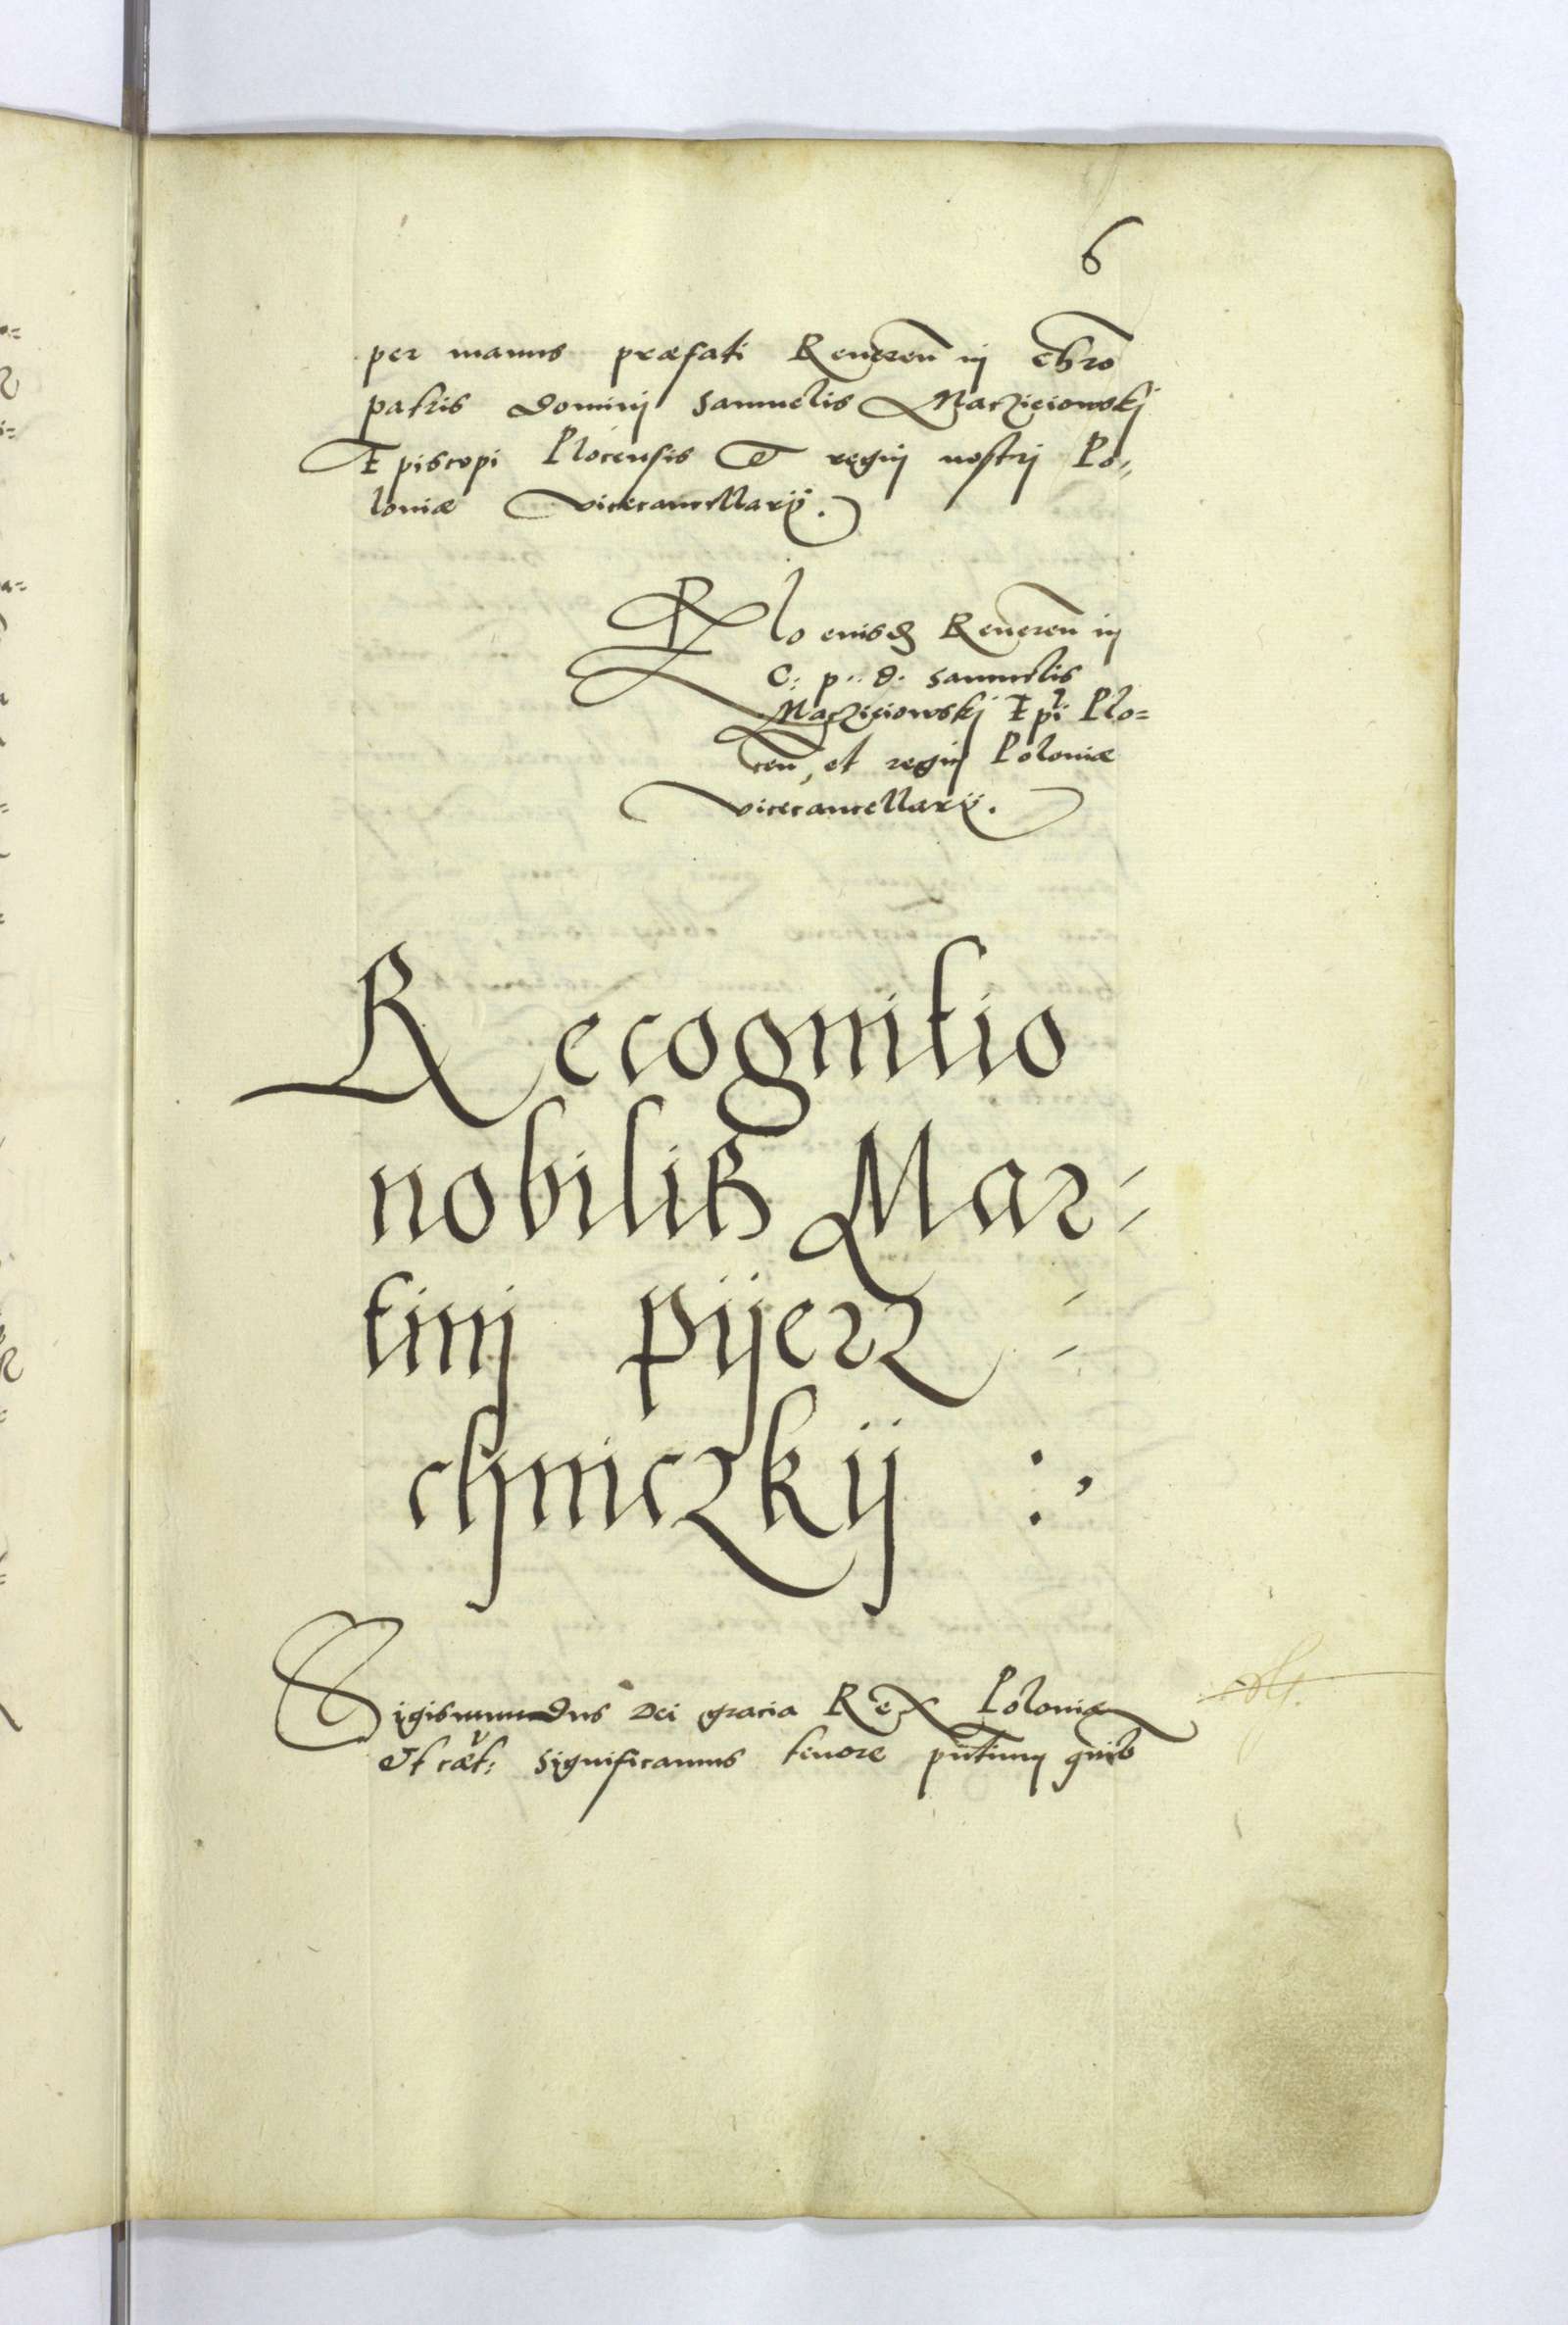 6
per manus præfati Reueren in chro
patris dominj Samuelis Maczieiowskj
Episcopi Plocensis Et regnj nostrj Po„
loniæ vicecancellarij.
Rlo eiusd Reueren in
C: p. d. Samuelis
Maczieiowskj Epi Plo=
cen, et regnj Poloniæ
vicecancellarij.
Recognitio
nobilis Mar=
tinj Pijerz=
chniczkij :,
Sigismundus Dei gracia Rex Poloniæ
Et cæt: Significamus tenore pntium quib